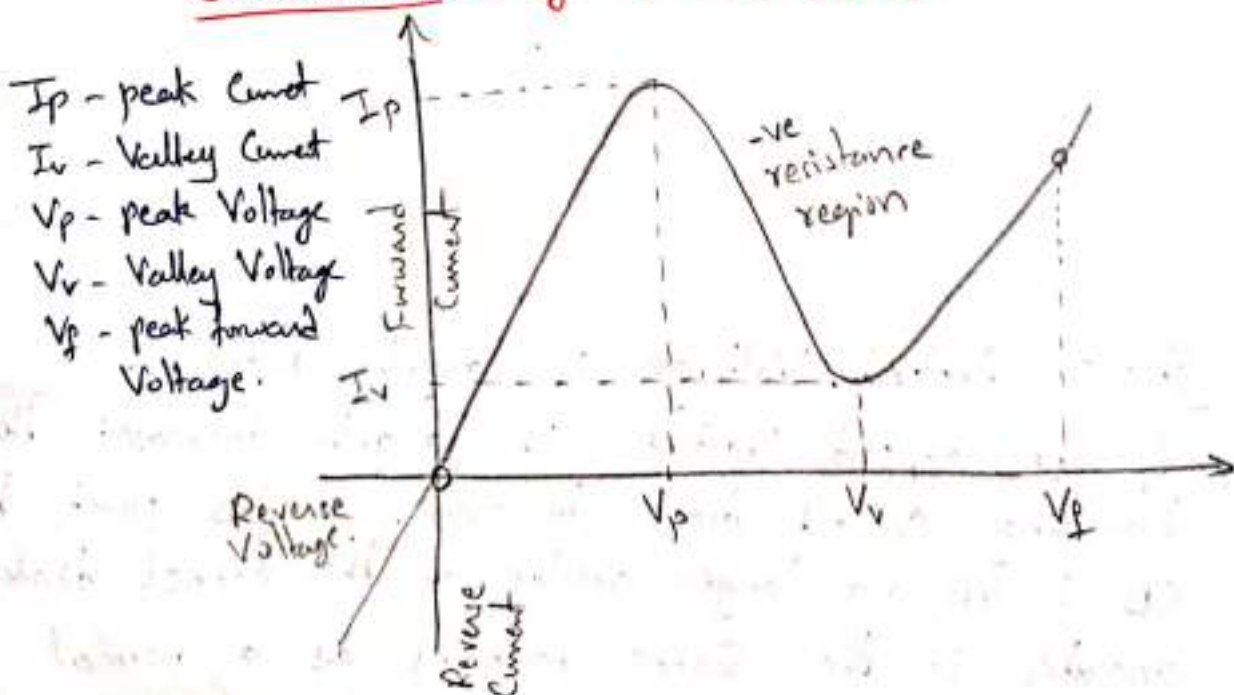 Ip - peak Current
Iv - Valley Current
Vp - peak Voltage
Vv - Valley Voltage
Vf - peak forward
Voltage.
Ip
Forward
Current
Iv
-ve
resistance
region
Reverse
Voltage.
Vp
Vv
Vf
Reverse
Current